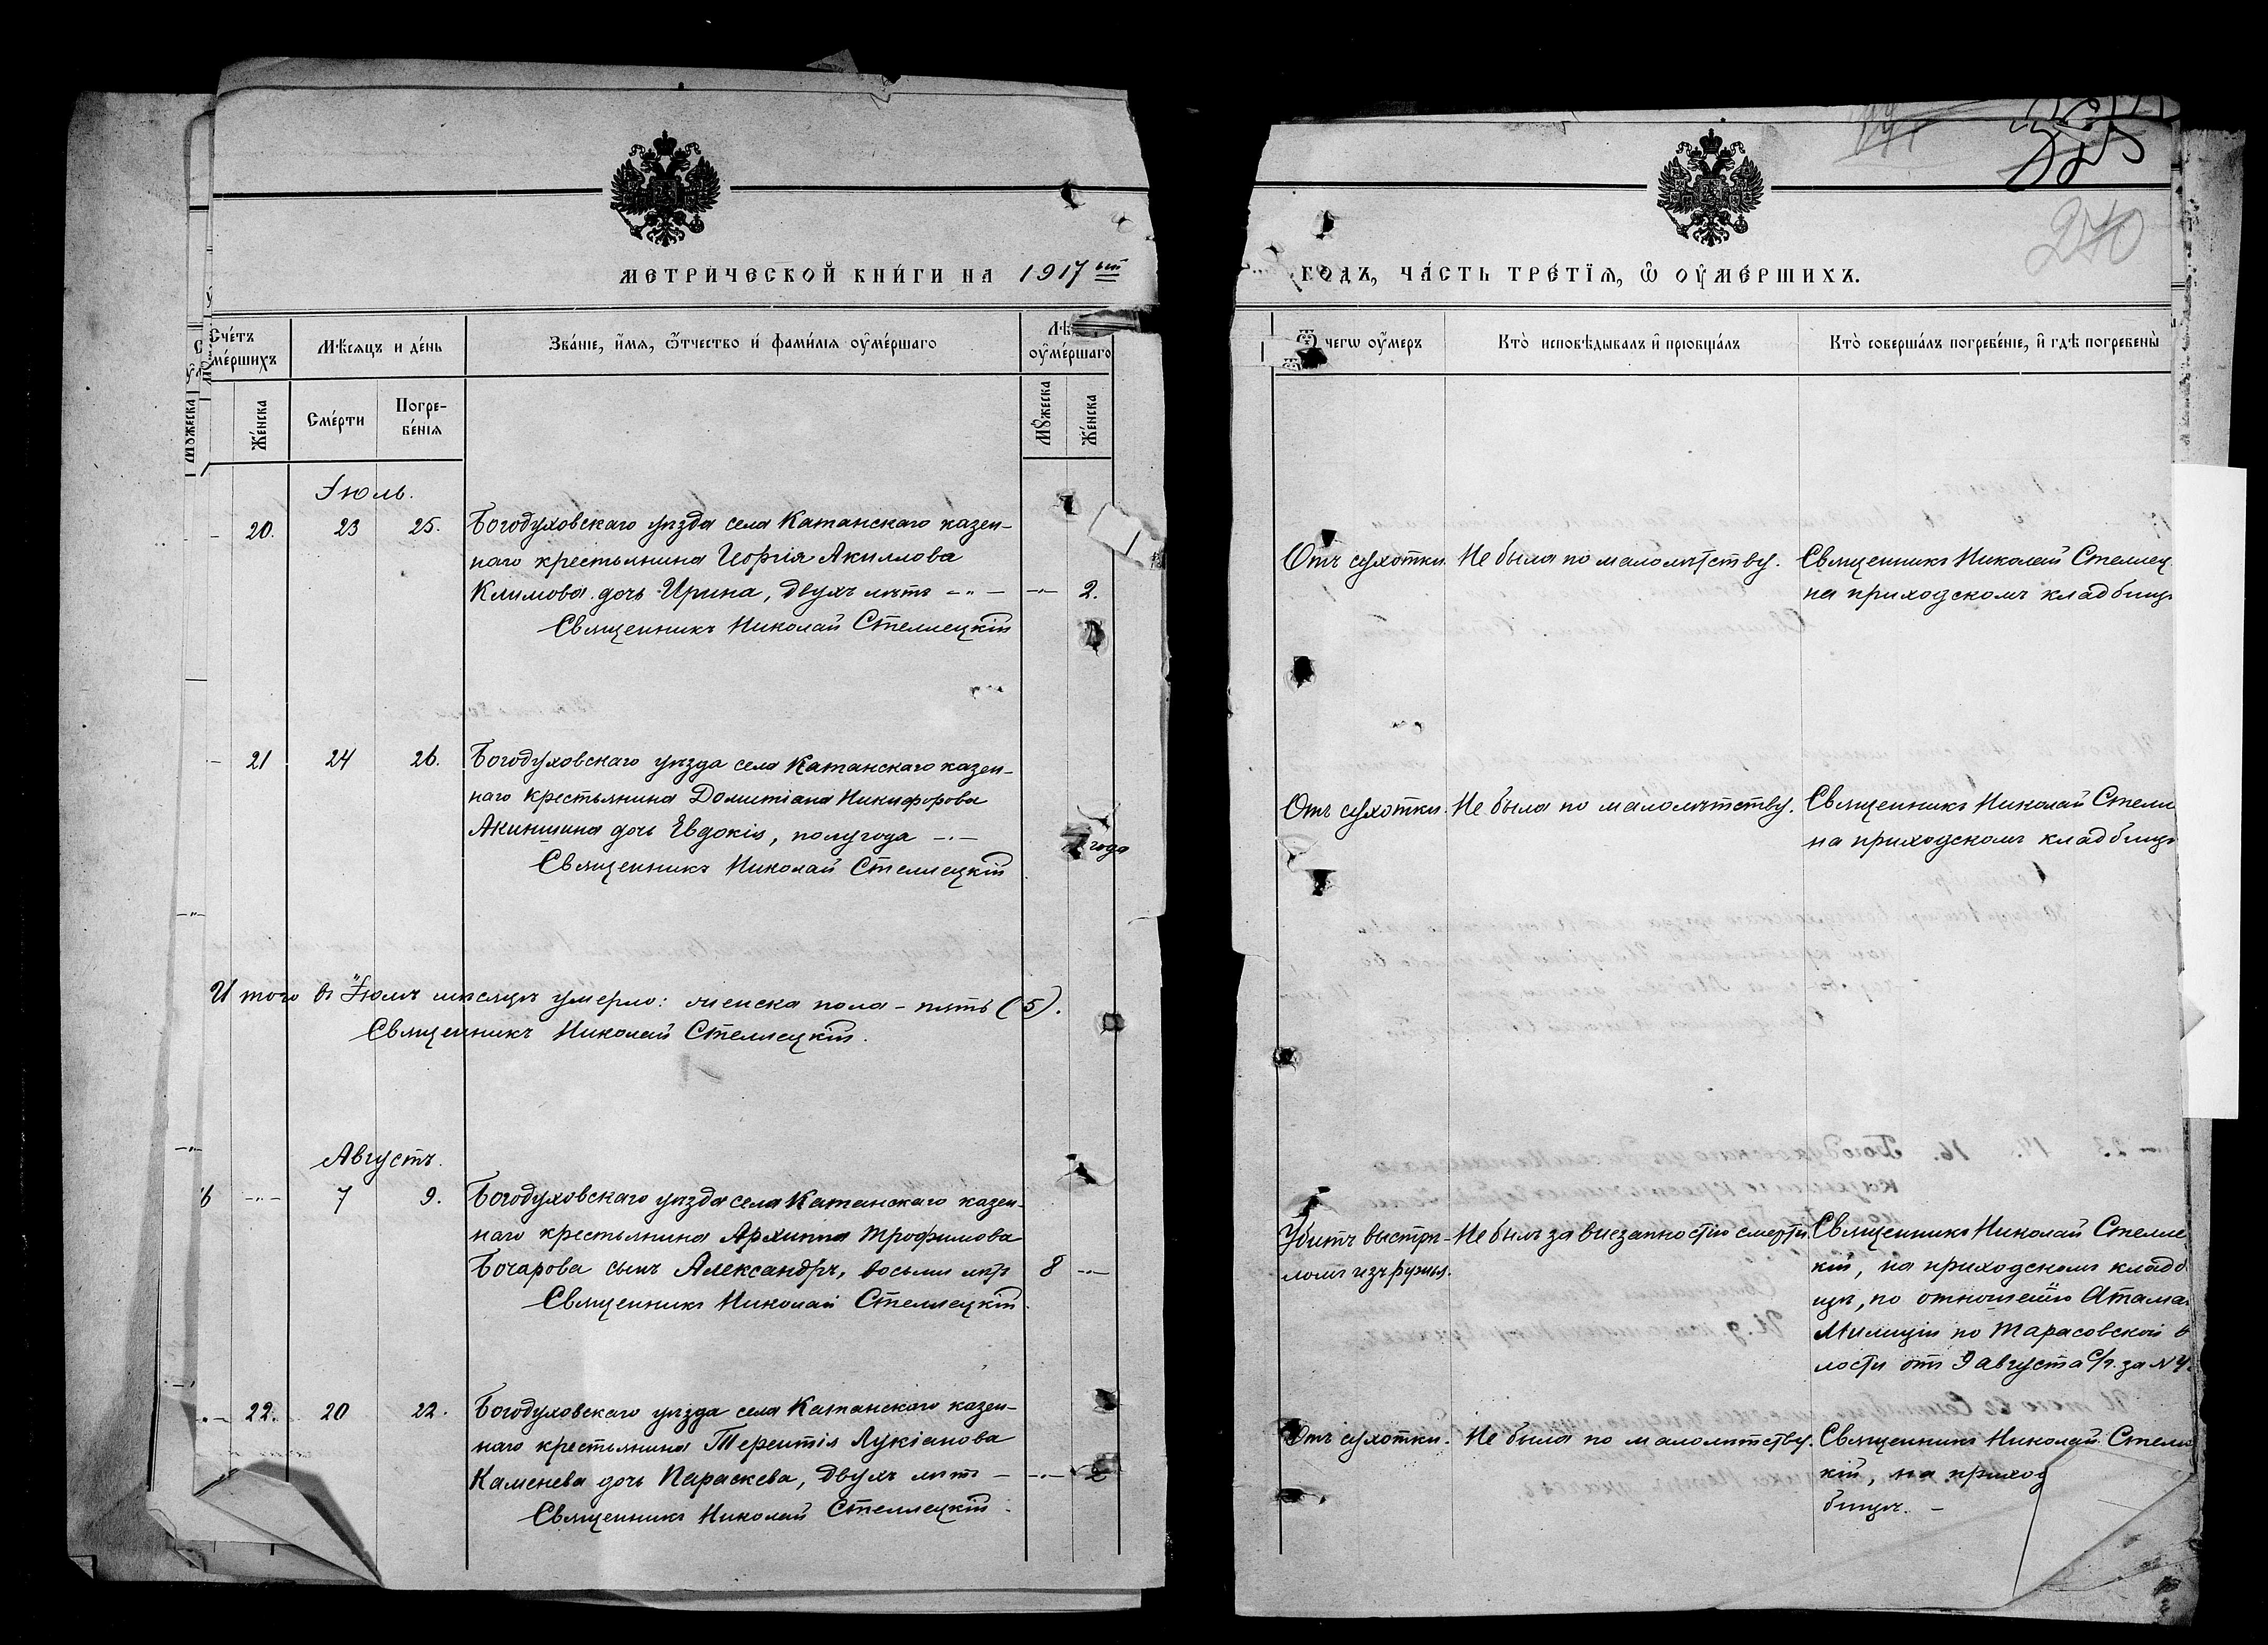 МЕТРИЧЕСКОЙ КНИГИ НА 1917ый
Счетъ
мершихъ
Мѣсяцъ и день
Званіе, имя, отчество и фамилія оумершаго
Лѣ
оумершаго
Мужеска
Женска
Смерти
Погре-
бенія
Мужеска
Женска
Іюль.
20. 23 25. Богодуховскаго уѣзда села Катанскаго казен-
наго крестьянина Иофія Акиллова
Климова дочь Ирина, двухъ лѣтъ -"- 2.
Священникъ Николай Стеллецкій
21 24 26. Богодуховскаго уѣзда села Катанскаго казен-
наго крестьянина Домитіана Никифорова
Акиншина дочь Евдокія, полугода года
Священникъ Николай Стеллецкій
Итого въ Іюлѣ мѣсяцѣ умерло: женска пола - пять (5).
Священникъ Николай Стеллецкій.
Августъ.
6 -"- 7 9. Богодуховскаго уѣзда села Катанскаго казен-
наго крестьянина Архиппа Трофимова
Бочарова сынъ Александръ, восьми лѣтъ 8 -"-
Священникъ Николай Стеллецкій
22. 20 22. Богодуховскаго уѣзда села Катанскаго казен-
наго крестьянина Терентія Лукіанова
Каменева дочь Параскева, двухъ лѣтъ - -"- 2
Священникъ Николай Стеллецкій
270
ГОДЪ, ЧАСТЬ ТРЕТІЯ, Ѡ ОУМЕРШИХЪ.
Ѿ чегѡ оумеръ
Кто исповѣдывалъ и пріобщалъ
Кто совершалъ погребеніе, и гдѣ погребены
Отъ сухотки. Не была по малолѣтству. Священникъ Николай Стеллец
на приходскомъ кладбищѣ
Отъ сухотки. Не была по малолѣтству. Священникъ Николай Стелл
на приходскомъ кладбищѣ
Убитъ выстрѣ- Не былъ за внезапностію смерти Священникъ Николай Стелле
ломъ изъ ружья. кій, на приходскомъ кладб
щѣ, по отношенію Атама
Милиціи по Тарасовской в
лости отъ 9 августа с/г. за №4
Отъ сухотки. Не была по малолѣтству. Священникъ Николай Стелл
кій, на приход
бищѣ. -